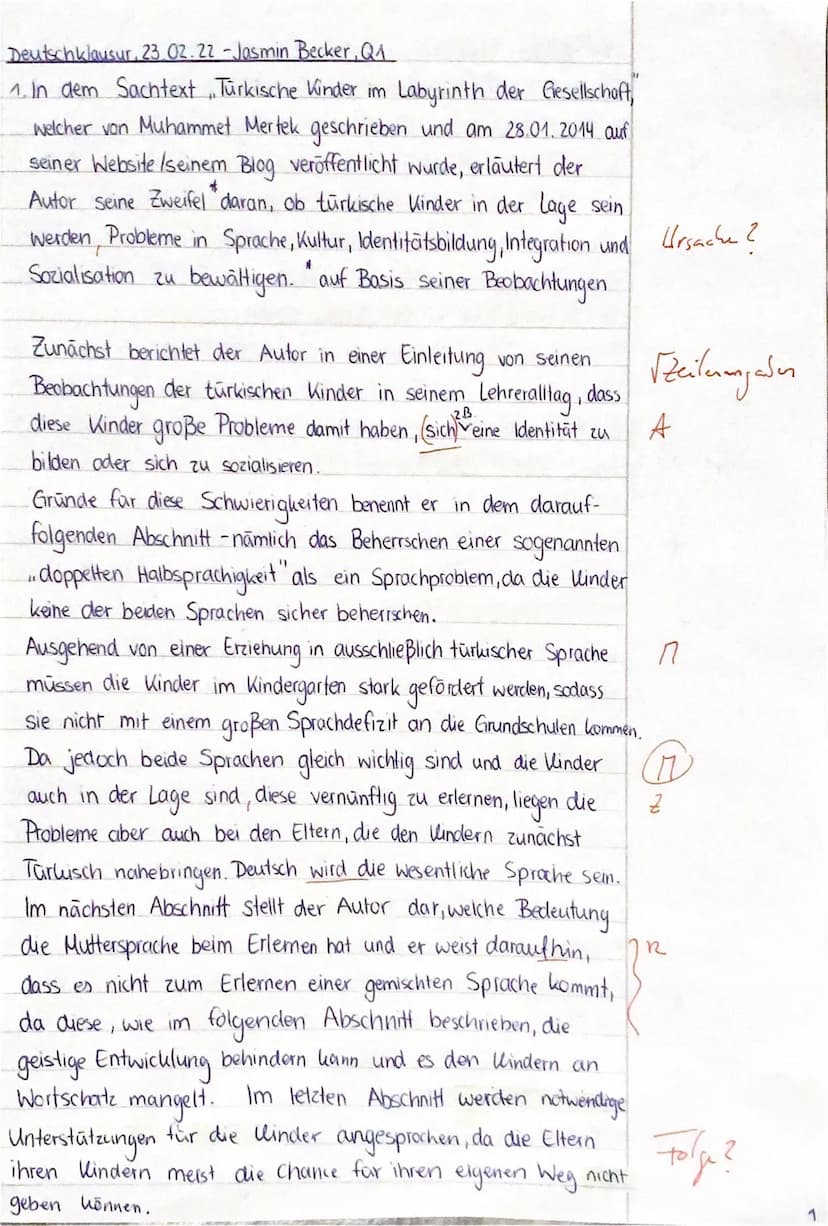 Deutschklausur, 23.02.22 - Jasmin Becker, Q1
1. In dem Sachtext „Türkische Kinder im Labyrinth der Gesellschaft,"
welcher von Muhammet Mertek geschrieben und am 28.01.2014 auf
seiner Website/seinem Blog veröffentlicht wurde, erläutert der
Autor seine Zweifel* daran, ob türkische Kinder in der Lage sein
werden, Probleme in Sprache, Kultur, Identitätsbildung, Integration und Ursache?
Sozialisation zu bewältigen. *auf Basis seiner Beobachtungen
Zunächst berichtet der Autor in einer Einleitung von seinen
√Zeilenangaben
Beobachtungen der türkischen Kinder in seinem Lehreralltag, dass
diese Kinder große Probleme damit haben, (sich) zB eine Identität zu A
bilden oder sich zu sozialisieren.
Gründe für diese Schwierigkeiten benennt er in dem darauf-
folgenden Abschnitt - nämlich das Beherrschen einer sogenannten
„doppelten Halbsprachigkeit" als ein Sprachproblem, da die Kinder
keine der beiden Sprachen sicher beherrschen.
Ausgehend von einer Erziehung in ausschließlich türkischer Sprache
müssen die Kinder im Kindergarten stark gefördert werden, sodass
sie nicht mit einem großen Sprachdefizit an die Grundschulen kommen.
Da jedoch beide Sprachen gleich wichtig sind und die Kinder
auch in der Lage sind, diese vernünftig zu erlernen, liegen die Z
Probleme aber auch bei den Eltern, die den Kindern zunächst
Türkisch nahebringen. Deutsch wird die wesentliche Sprache sein.
Im nächsten Abschnitt stellt der Autor dar, welche Bedeutung
die Muttersprache beim Erlernen hat und er weist daraufhin, R
dass es nicht zum Erlernen einer gemischten Sprache kommt,
da diese, wie im folgenden Abschnitt beschrieben, die
geistige Entwicklung behindern kann und es den Kindern an
Wortschatz mangelt. Im letzten Abschnitt werden notwendige
Unterstützungen für die Kinder angesprochen, da die Eltern Folge?
ihren Kindern meist die Chance für ihren eigenen Weg nicht
geben können.
1